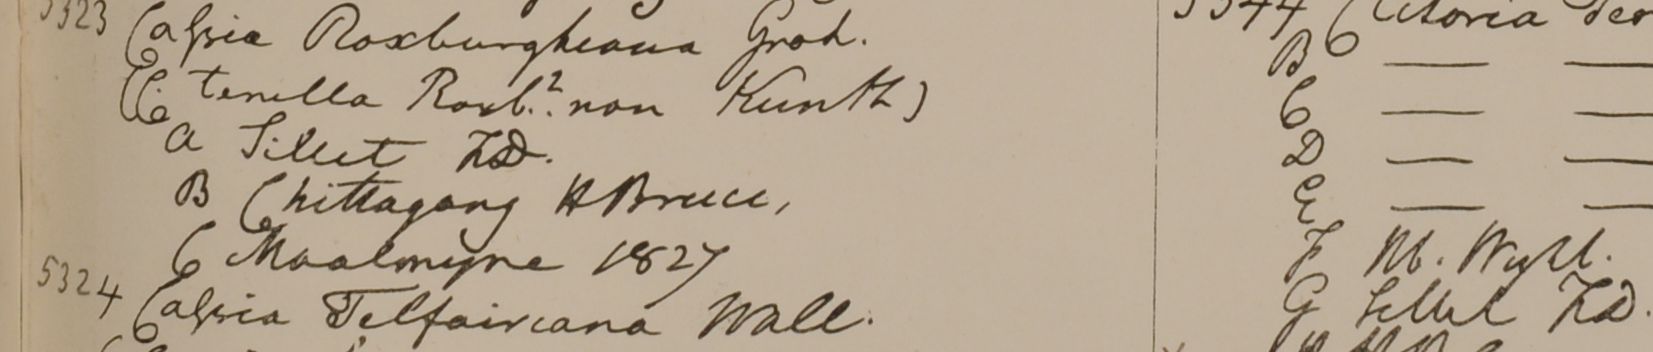 5323 Cassia Roxburgheana Grah.
(C. tenella Roxb.? non Kunth)
a Sillet F.D.
B Chittagong H Bruce,
C Moalmyne 1827
5324 Cassia Telfaireana Wall.
5344 Clitoria
B — —
C — —
D — —
E — —
F M. Wight.
G Sillet F.D.